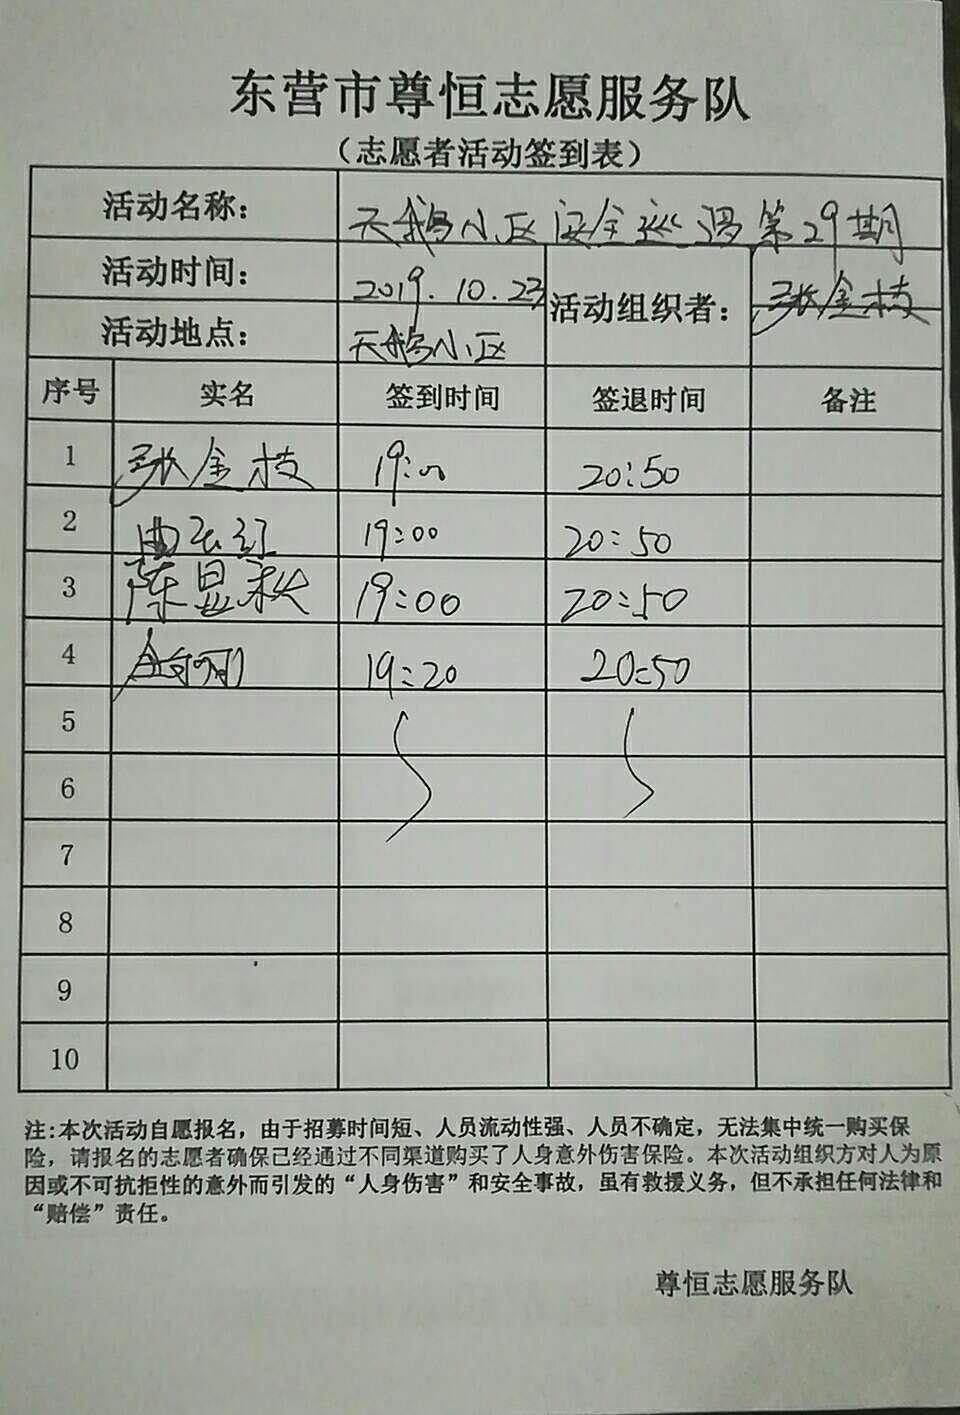 东营市尊恒志愿服务队
（志愿者活动签到表）
活动名称： 天鹅小区安全巡逻第29期
活动时间： 2019.10.23 活动组织者： 张金枝
活动地点： 天鹅小区
序号 实名 签到时间 签退时间 备注
1 张金枝 19:00 20:50
2 19:00 20:50
3 陈显秋 19:00 20:50
4 19:20 20:50
5
6
7
8
9
10
注:本次活动自愿报名，由于招募时间短、人员流动性强、人员不确定，无法集中统一购买保
险，请报名的志愿者确保已经通过不同渠道购买了人身意外伤害保险。本次活动组织方对人为原
因或不可抗拒性的意外而引发的“人身伤害”和安全事故，虽有救援义务，但不承担任何法律和
“赔偿”责任。
尊恒志愿服务队